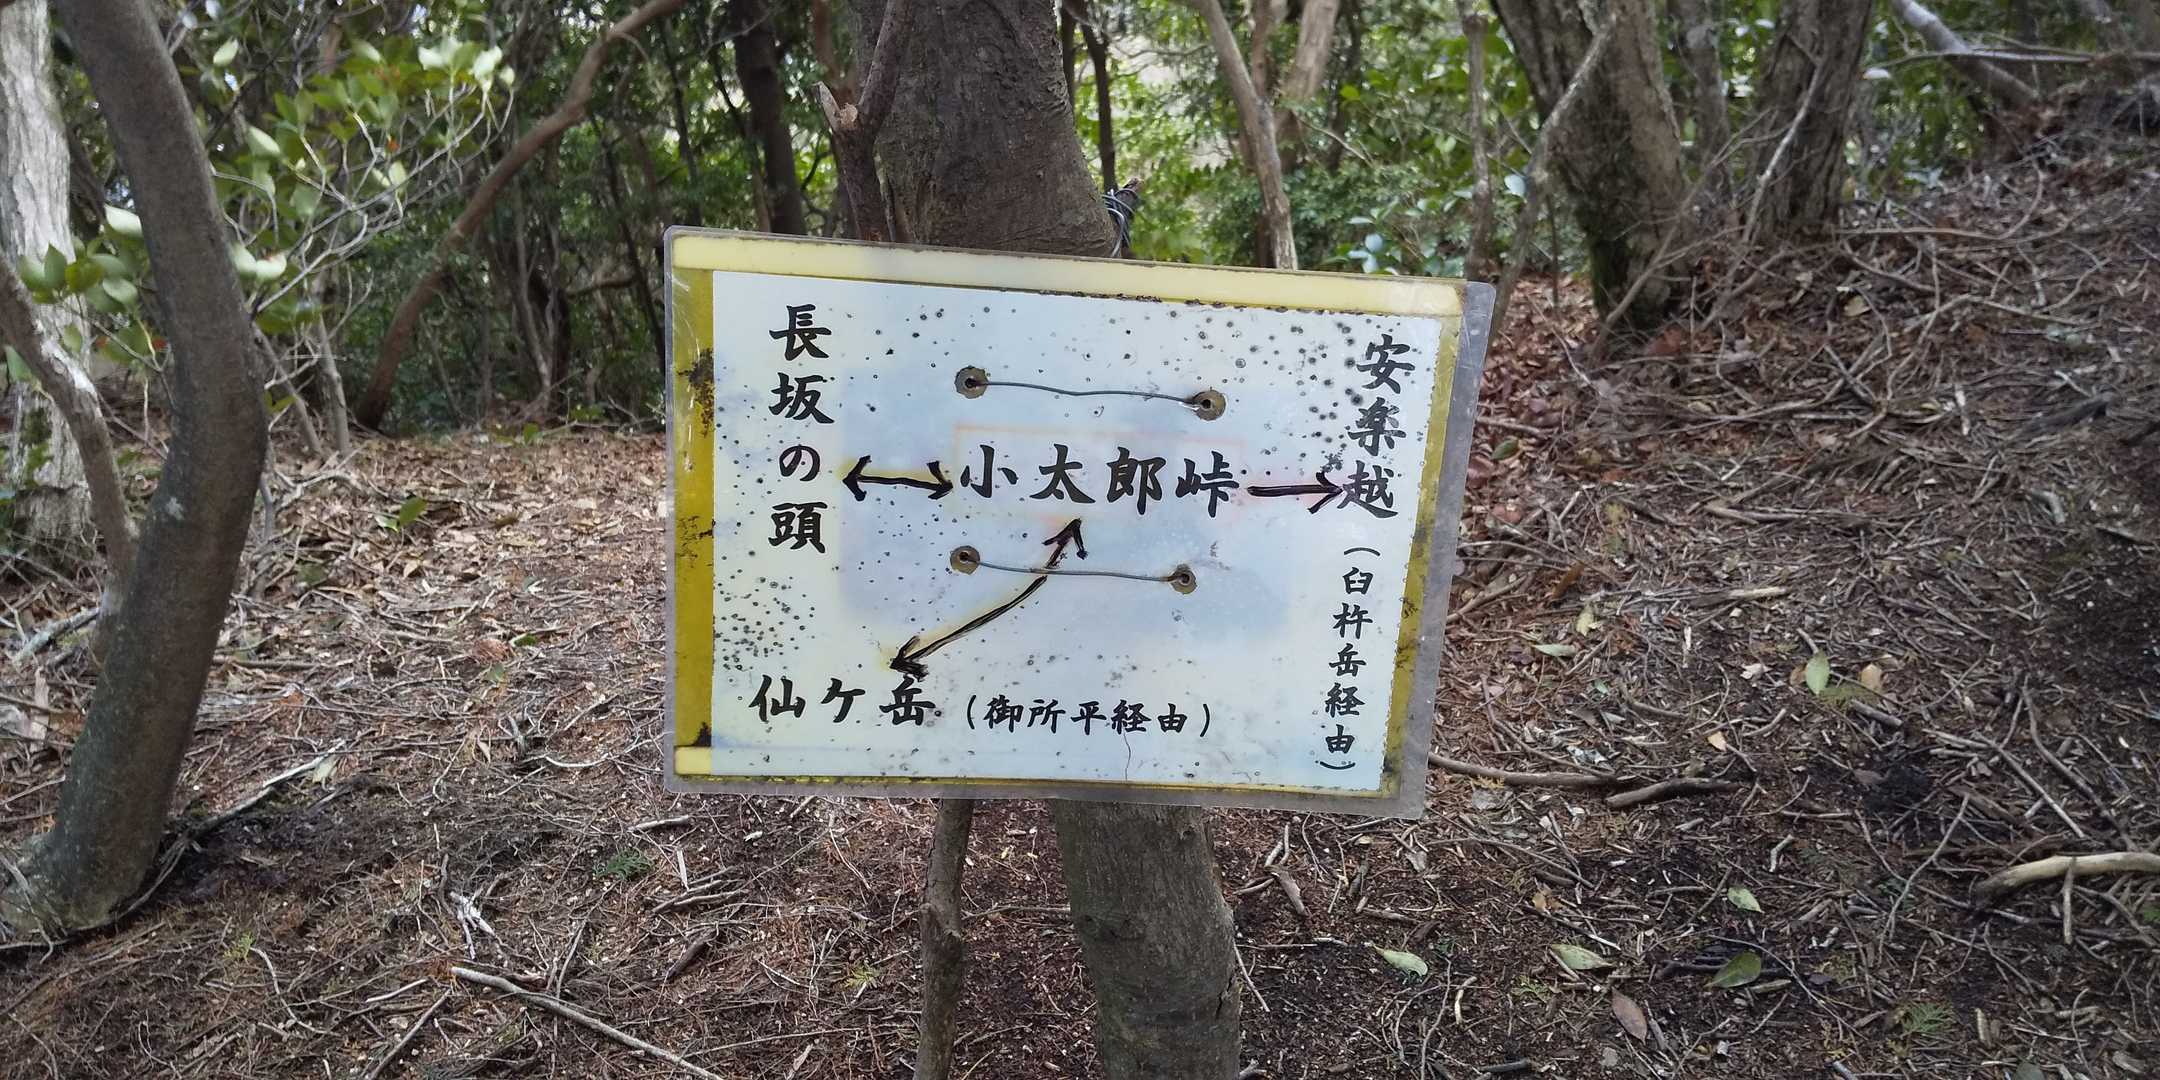 安楽越
(臼杵岳経由)
小太郎峠
長坂の頭
仙ケ岳 (御所平経由)